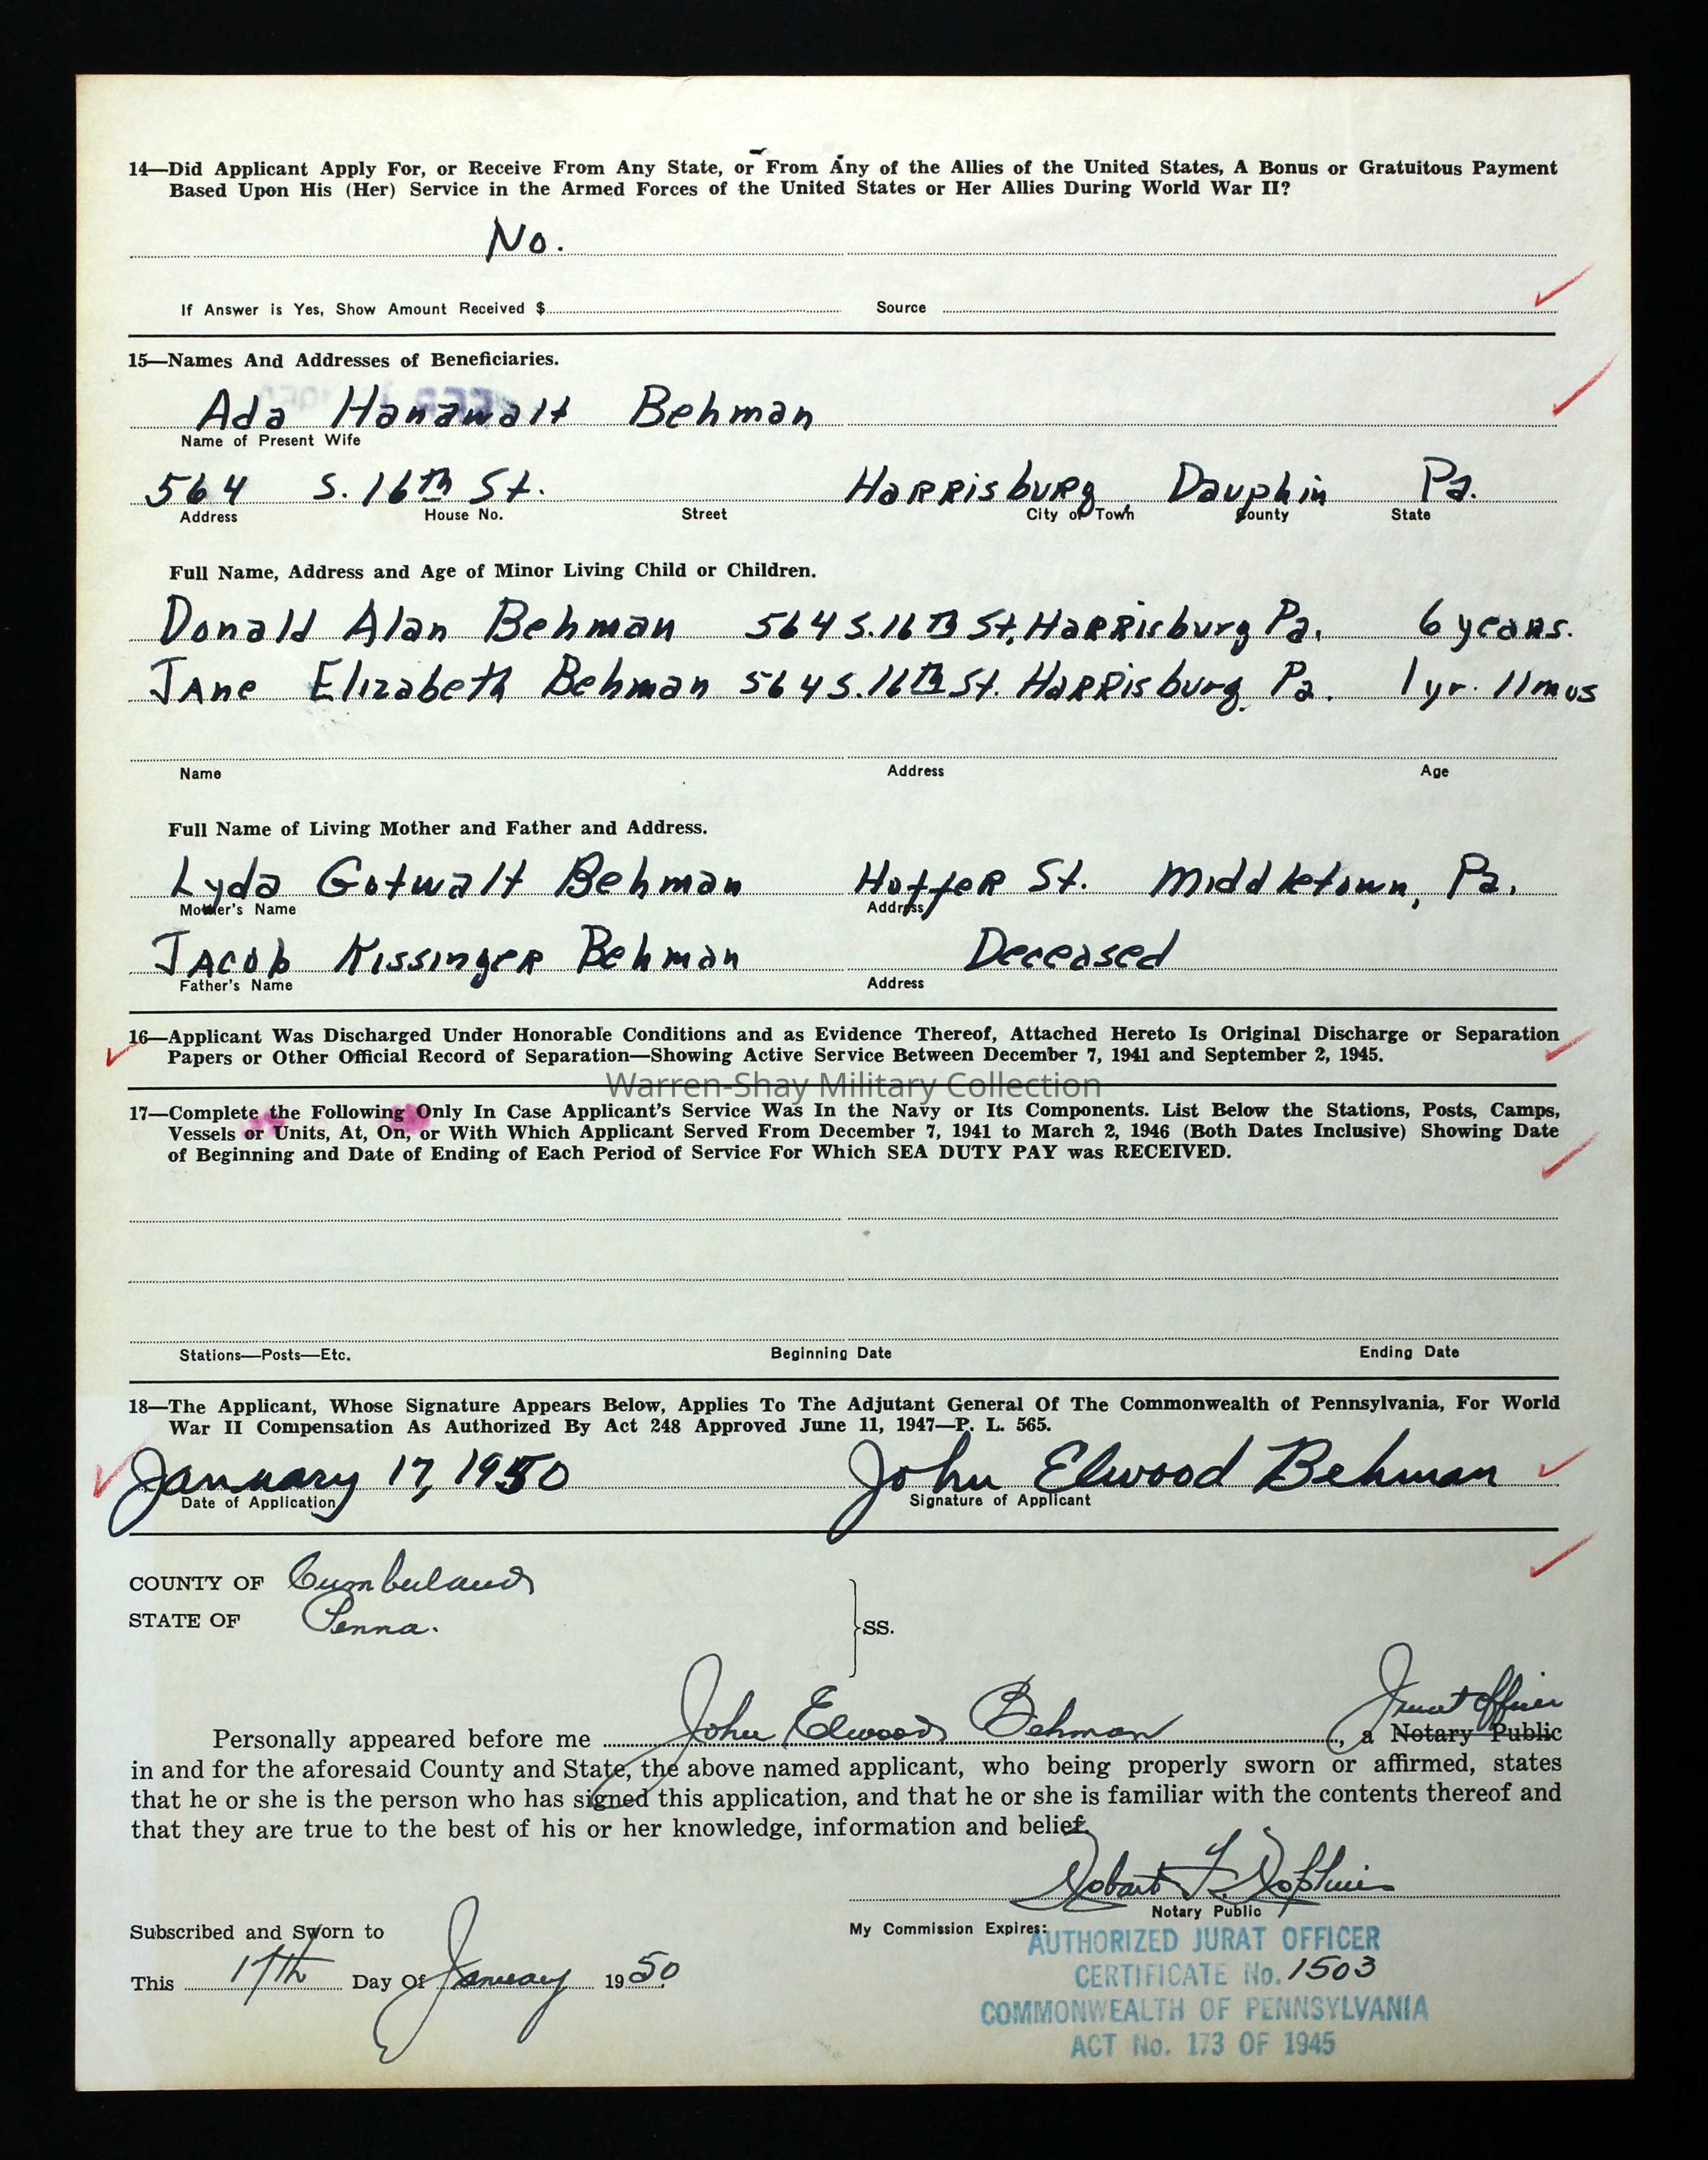 14—Did Applicant Apply For, or Receive From Any State, or From Any of the Allies of the United States, A Bonus or Gratuitous Payment
Based Upon His (Her) Service in the Armed Forces of the United States or Her Allies During World War II?
No.
If Answer is Yes, Show Amount Received $ Source
15—Names And Addresses of Beneficiaries.
Ada Hanawalt Behman
Name of Present Wife
564 S. 16th St. Harrisburg Dauphin Pa.
Address House No. Street City or Town County State
Full Name, Address and Age of Minor Living Child or Children.
Donald Alan Behman 564 S. 16th St, Harrisburg Pa. 6 years.
Jane Elizabeth Behman 564 S. 16th St. Harrisburg Pa. 1 yr. 11 mos
Name Address Age
Full Name of Living Mother and Father and Address.
Lyda Gotwalt Behman Hoffer St. Middletown, Pa.
Mother's Name Address
Jacob Kissinger Behman Deceased
Father's Name Address
16—Applicant Was Discharged Under Honorable Conditions and as Evidence Thereof, Attached Hereto Is Original Discharge or Separation
Papers or Other Official Record of Separation—Showing Active Service Between December 7, 1941 and September 2, 1945.
Warren-Shay Military Collection
17—Complete the Following Only In Case Applicant's Service Was In the Navy or Its Components. List Below the Stations, Posts, Camps,
Vessels or Units, At, On, or With Which Applicant Served From December 7, 1941 to March 2, 1946 (Both Dates Inclusive) Showing Date
of Beginning and Date of Ending of Each Period of Service For Which SEA DUTY PAY was RECEIVED.
Stations—Posts—Etc. Beginning Date Ending Date
18—The Applicant, Whose Signature Appears Below, Applies To The Adjutant General Of The Commonwealth of Pennsylvania, For World
War II Compensation As Authorized By Act 248 Approved June 11, 1947—P. L. 565.
January 17, 1950 John Elwood Behman
Date of Application Signature of Applicant
COUNTY OF Cumberland
STATE OF Penna. SS.
Jurat Officer
Personally appeared before me John Elwood Behman, a Notary Public
in and for the aforesaid County and State, the above named applicant, who being properly sworn or affirmed, states
that he or she is the person who has signed this application, and that he or she is familiar with the contents thereof and
that they are true to the best of his or her knowledge, information and belief.
Robert F. Hopkins
Notary Public
Subscribed and Sworn to My Commission Expires:
AUTHORIZED JURAT OFFICER
This 17th Day Of January 1950
CERTIFICATE No. 1503
COMMONWEALTH OF PENNSYLVANIA
ACT No. 173 OF 1945